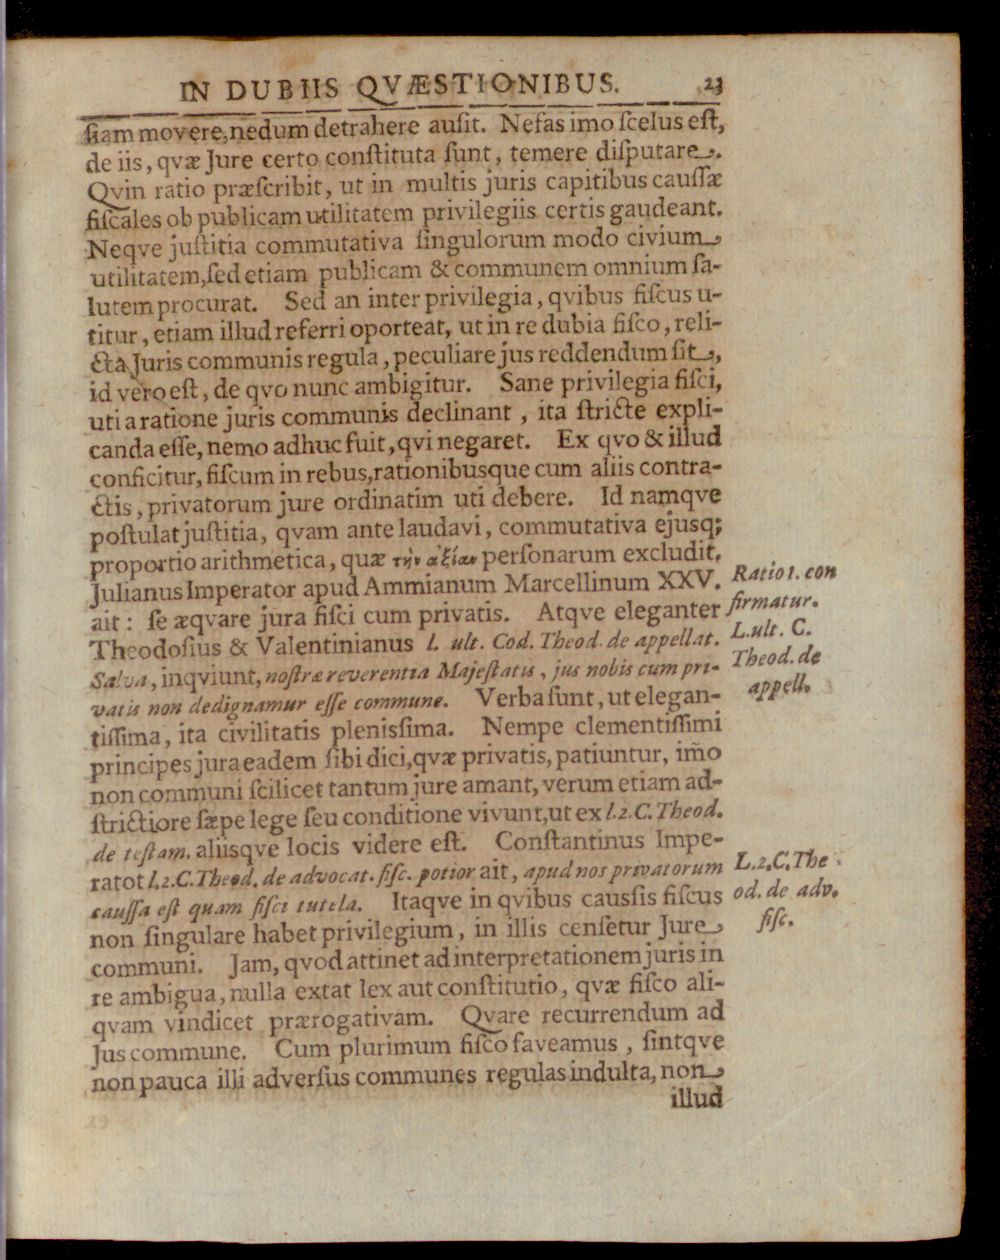 IN DUBIIS QVÆSTIONIBUS. 23
ſiam movere, nedum detrahere auſit. Nefas imo ſcelus eſt,
de iis, qvæ Jure certo conſtituta ſunt, temere diſputare.
Qvin ratio præſcribit, ut in multis juris capitibus cauſſæ
fiſcales ob publicam utilitatem privilegiis certis gaudeant.
Neqve juſtitia commutativa ſingulorum modo civium
utilitatem, ſed etiam publicam & communem omnium ſa-
lutem procurat. Sed an inter privilegia, qvibus fiſcus u-
titur, etiam illud referri oporteat, ut in re dubia fiſco, reli-
cta Juris communis regula, peculiare jus reddendum ſit,
id vero eſt, de qvo nunc ambigitur. Sane privilegia fiſci,
uti a ratione juris communis declinant, ita ſtricte expli-
canda eſſe, nemo adhuc fuit, qvi negaret. Ex qvo & illud
conficitur, fiſcum in rebus, rationibusque cum aliis contra-
ctis, privatorum jure ordinatim uti debere. Id namqve
poſtulat juſtitia, qvam ante laudavi, commutativa ejusq;
proportio arithmetica, quæ τὴν ἀξίαν perſonarum excludit.
Julianus Imperator apud Ammianum Marcellinum XXV.
Ratio 1. con
ait: ſe æqvare jura fiſci cum privatis. Atqve eleganter
firmatur.
Theodoſius & Valentinianus l. ult. Cod. Theod. de appellat.
L. ult. C.
Salva, inqviunt, noſtræ reverentia Majeſtatis, jus nobis cum pri-
Theod. de
vatis non dedignamur eſſe commune. Verba ſunt, ut elegan-
appell.
tiſſima, ita civilitatis pleniſſima. Nempe clementiſſimi
principes jura eadem ſibi dici, qvæ privatis, patiuntur, im̃o
non communi ſcilicet tantum jure amant, verum etiam ad-
ſtrictiore ſæpe lege ſeu conditione vivunt, ut ex l. 2. C. Theod.
de teſtam. aliisqve locis videre eſt. Conſtantinus Impe-
ratot l. 2. C. Theod. de advocat. fiſc. potior ait, apud nos privatorum
L. 2. C. The
cauſſa eſt quam fiſci tutela. Itaqve in qvibus cauſsis fiſcus
od. de adv.
non ſingulare habet privilegium, in illis cenſetur Jure
fiſc.
communi. Jam, qvod attinet ad interpretationem juris in
re ambigua, nulla extat lex aut conſtitutio, qvæ fiſco ali-
qvam vindicet prærogativam. Qvare recurrendum ad
Jus commune. Cum plurimum fiſco faveamus, ſintqve
non pauca illi adverſus communes regulas indulta, non
illud